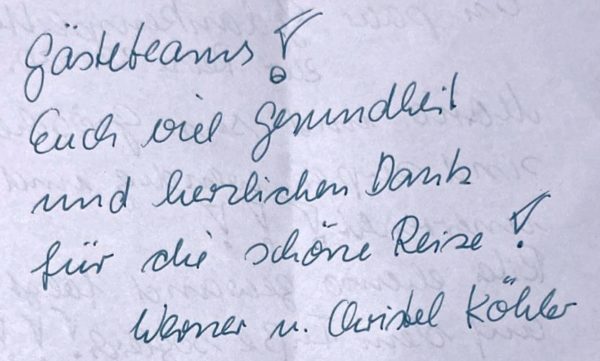 Gästeteams!
Euch viel Gesundheit
und herzlichen Dank
für die schöne Reise!
Werner u. Christel Köhler